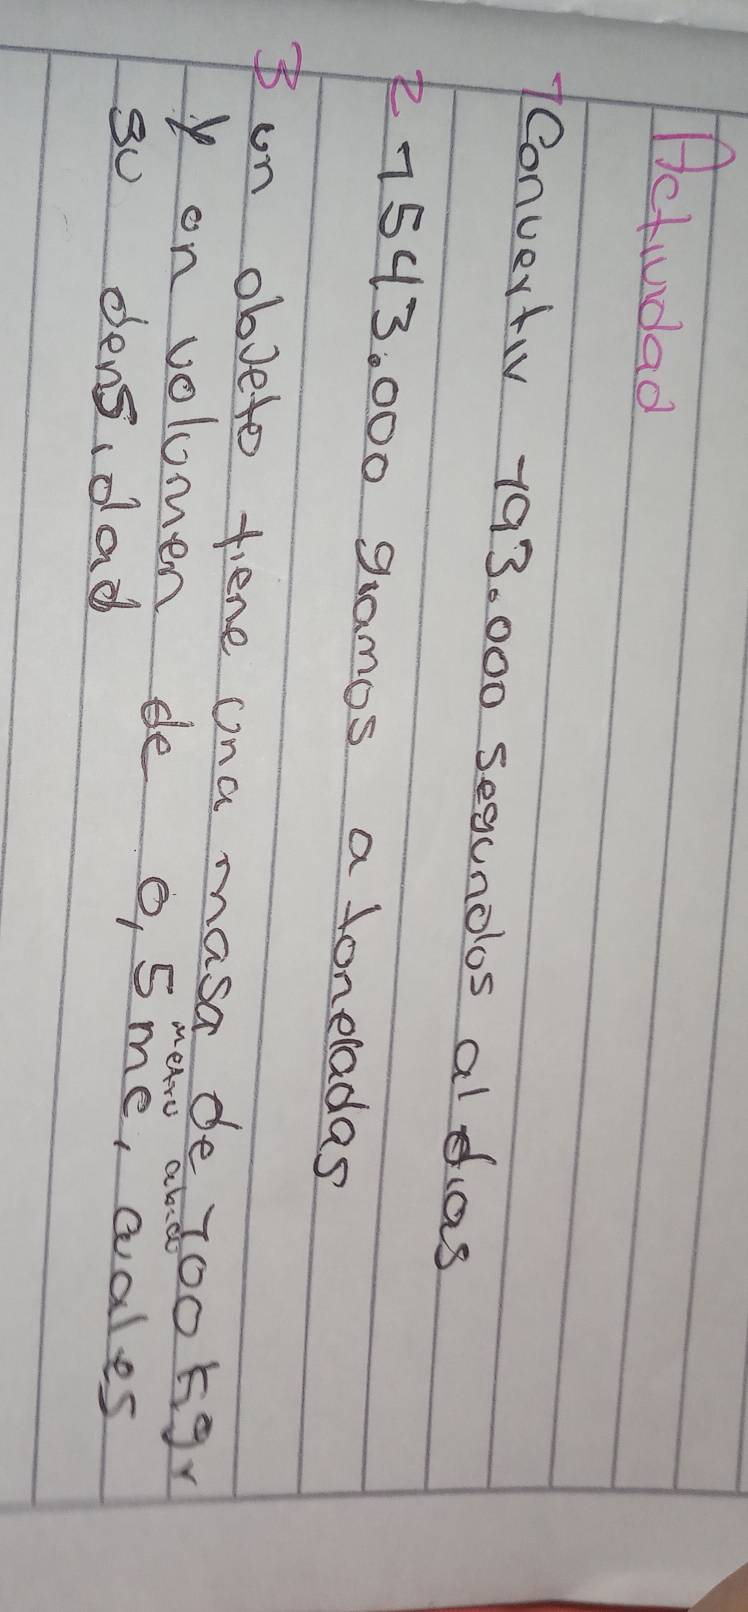 Actividad
1 Convertir 193.000 segundos al dias
2 1543.000 gramos a toneladas
3 un objeto tiene una masa de 100 kgr
y un volumen de 0,5 me, cuales
metro
su densidad